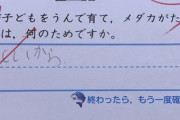 子どもをうんで育て、メダカがた
は、何のためですか。
いから
終わったら、もう一度確